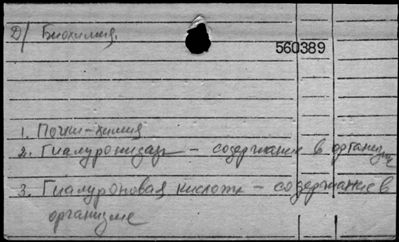 D/ Биохимия.
560389
1. Почки-химия
2. Гиалуронидаза - содержание в организме
3. Гиалуроновая кислота - содержание в
организме